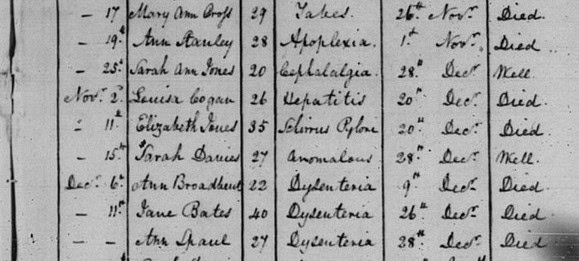 – 17 Mary Ann Cross 29 Tabes. 26th Novr. Died.
– 19th Ann Stanley 28 Apoplexia. 1st Novr. Died
– 25th Sarah Ann Jones 20 Cephalalgia. 28th Decr. Well.
Novr. 2d Louisa Cogan 26 Hepatitis 20th Decr. Died.
– 11th Elizabeth Jones 35 Schirrus Pylori 20th Decr. Died.
– 15th Sarah Davies 27 Anomalous 28th Decr. Well.
Decr. 6th Ann Broadhurst 22 Dysenteria 9th Decr. Died
– 11th Jane Bates 40 Dysenteria 26th Decr. Died
– – Ann 27 Dysenteria 28th Decr. Died